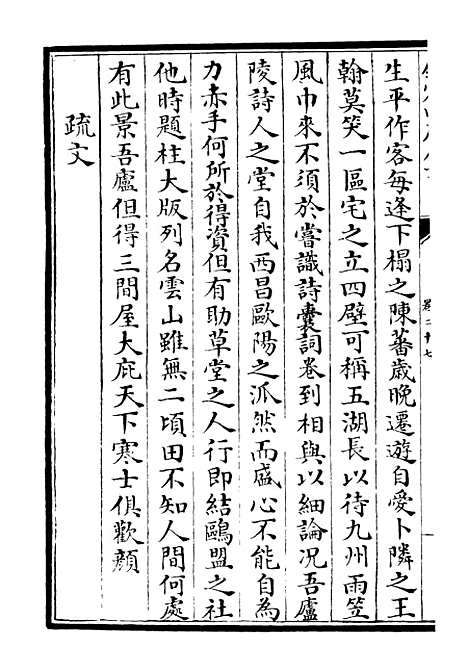 生平作客每逢下榻之陳蕃歲晚遷遊自愛卜隣之王
翰莫笑一區宅之立四壁可稱五湖長以待九州雨笠
風巾來不須於嘗識詩囊詞卷到相與以細論況吾廬
陵詩人之堂自我西昌歐陽之派然而盛心不能自為
力赤手何所於得資但有助草堂之人行即結鷗盟之社
他時題柱大版列名雲山雖無二頃田不知人間何處
有此景吾廬但得三間屋大庇天下寒士俱歡顔
疏文
卷二十七